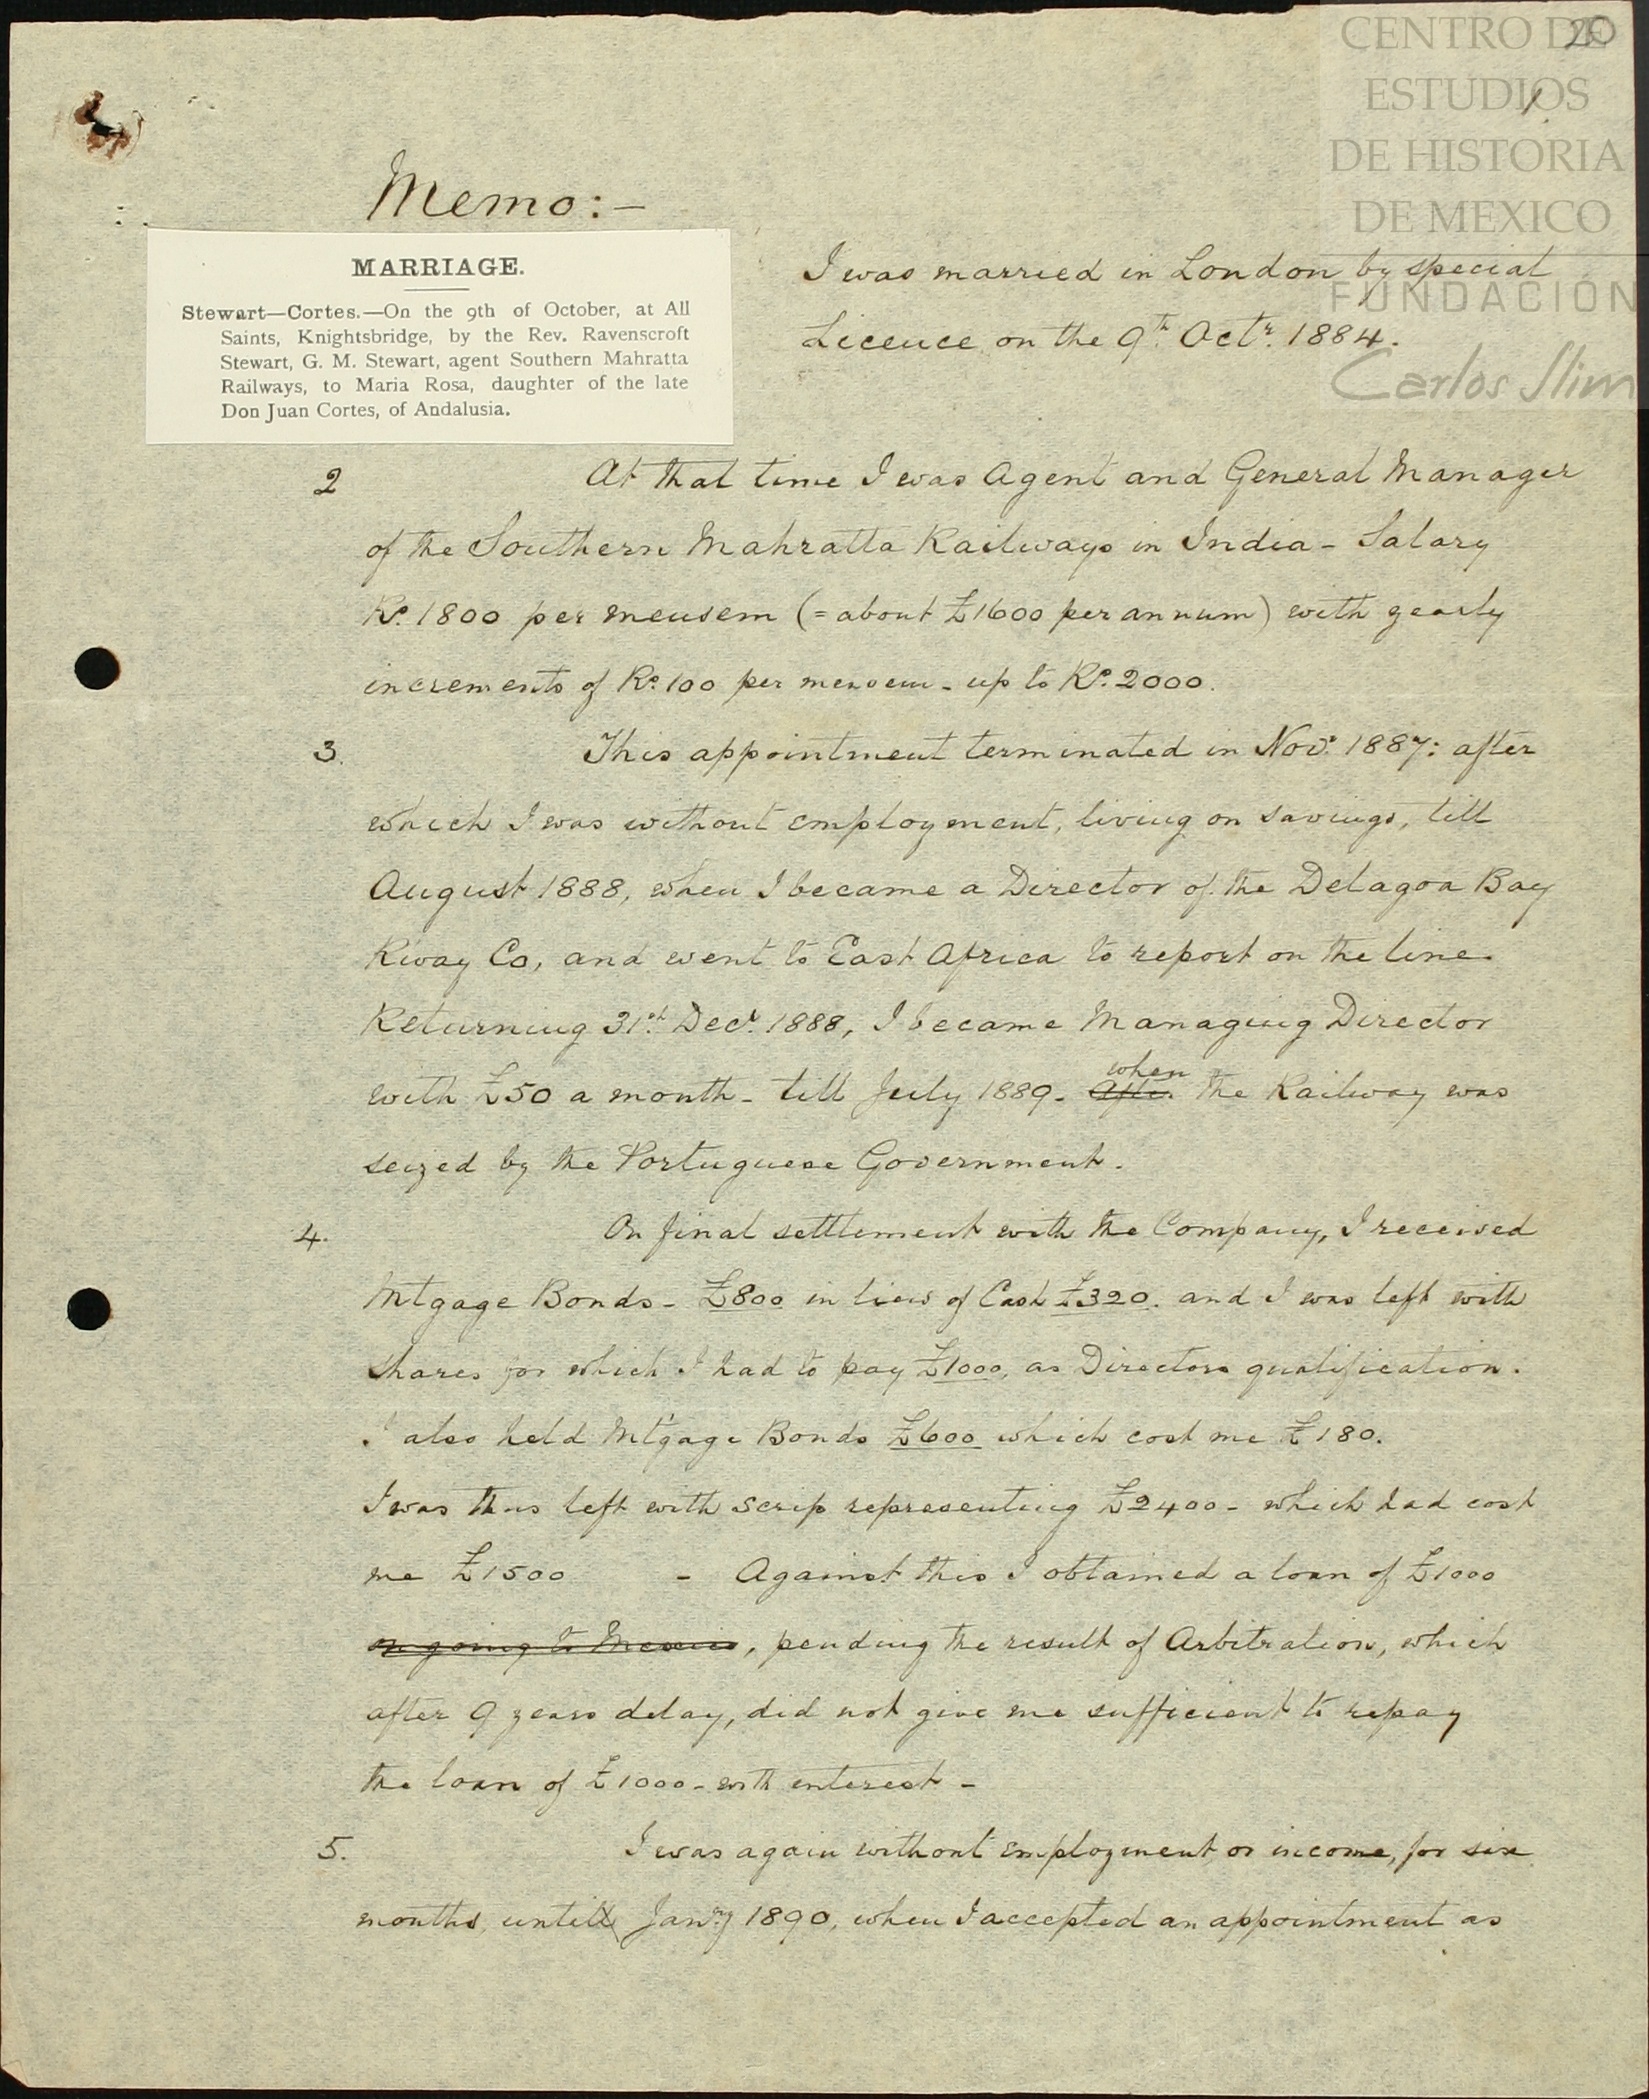 20
1.
CENTRO DE
ESTUDIOS
DE HISTORIA
DE MEXICO
FUNDACIÓN
Carlos Slim
Memo:-
MARRIAGE.
Stewart—Cortes.—On the 9th of October, at All
Saints, Knightsbridge, by the Rev. Ravenscroft
Stewart, G. M. Stewart, agent Southern Mahratta
Railways, to Maria Rosa, daughter of the late
Don Juan Cortes, of Andalusia.
I was married in London by special
Licence on the 9th Octr. 1884.
2 At that time I was Agent and General Manager
of the Southern Mahratta Railways in India - Salary
Rs. 1800 per mensem (= about £1600 per annum) with yearly
increments of Rs. 100 per mensem - up to Rs. 2000.
3. This appointment terminated in Novr. 1887: after
which I was without employment, living on savings, till
August 1888, when I became a Director of the Delagoa Bay
Rway Co, and went to East Africa to report on the line.
Returning 31st Decr. 1888, I became Managing Director
with £50 a month - till July 1889. After when the Railway was
seized by the Portuguese Government.
4. On final settlement with the Company, I received
Mtgage Bonds - £800 in lieu of Cash £320. and I was left with
shares for which I had to pay £1000, as Directors qualification.
I also held Mt'gage Bonds £600 which cost me £180.
I was thus left with scrip representing £2400 - which had cost
me £1500 - Against this I obtained a loan of £1000
on going to Mexico, pending the result of Arbitration, which
after 9 years delay, did not give me sufficient to repay
the loan of £1000 - with interest -
5. I was again without employment or income, for six
months, until Janry 1890, when I accepted an appointment as